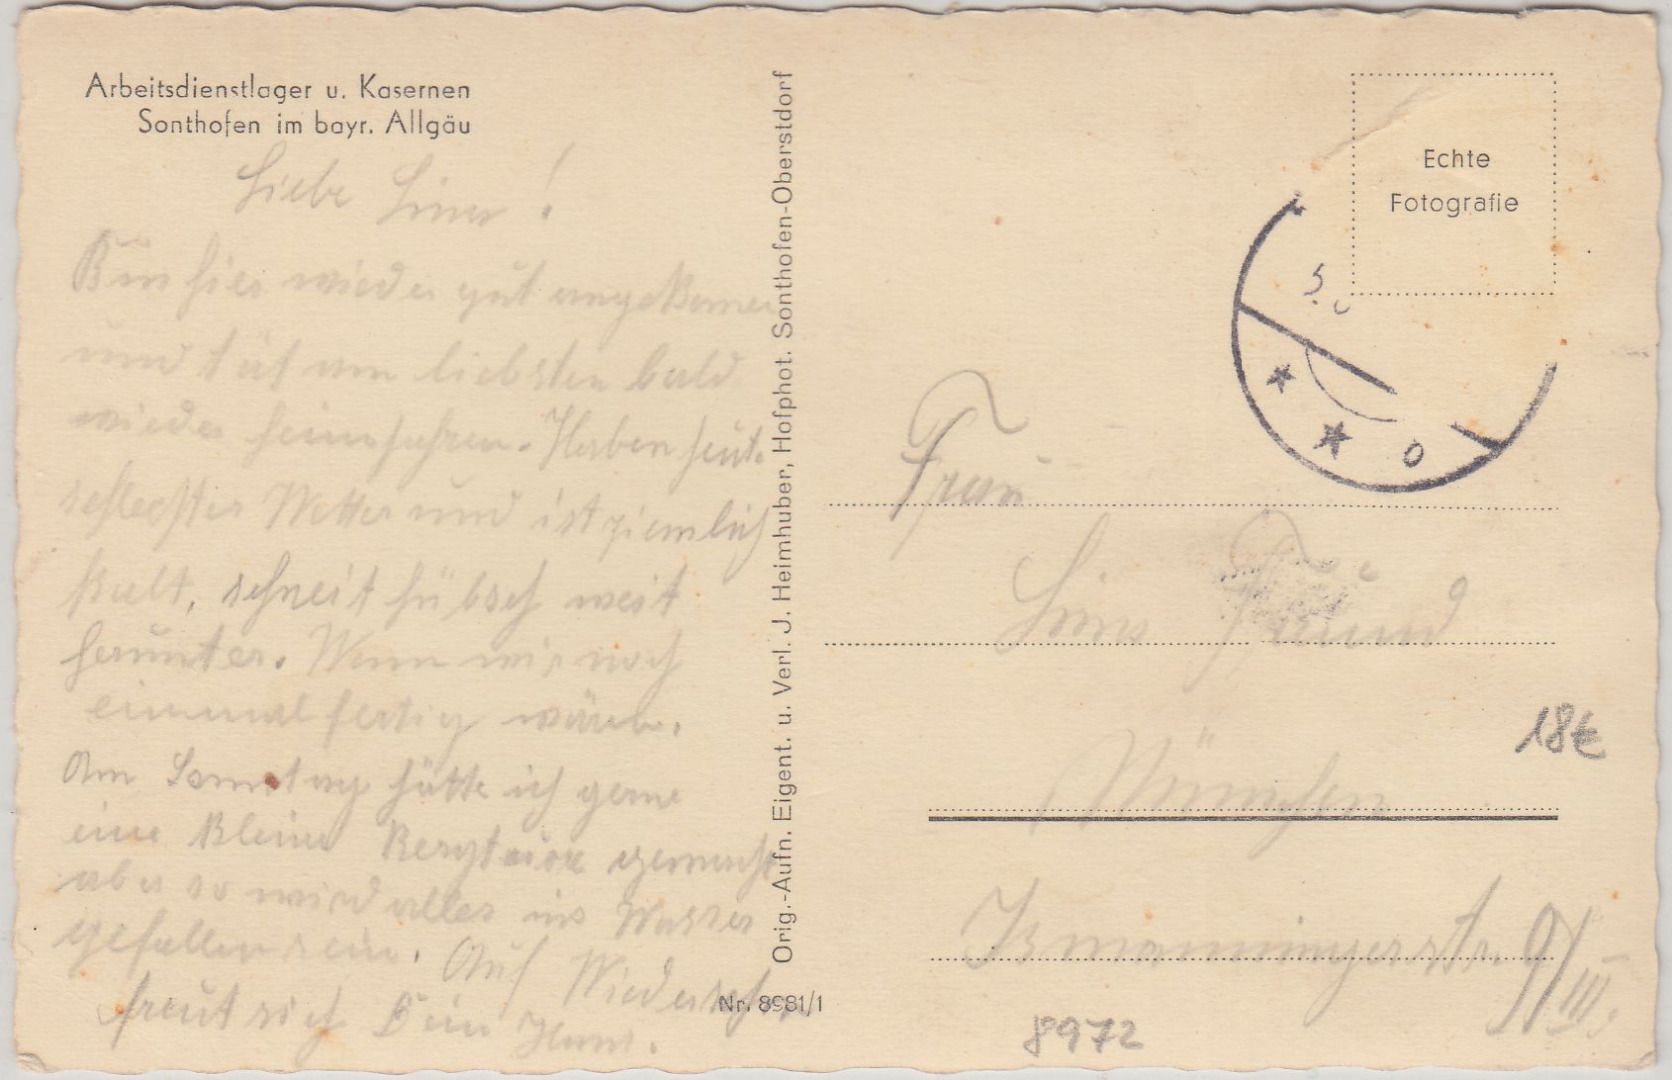 Arbeitsdienstlager u. Kasernen
Sonthofen im bayr. Allgäu
Liebe !
Bin hier wieder gut angekommen
und tät am liebsten bald
wieder heimfahren. Haben heut.
schlechtes Wetter und ist ziemlich
kalt, schneit hübsch weit
herunter. Wenn wir noch
einmal fertig wären.
Am Samstag hätte ich gerne
eine kleine Bergtour gemacht
aber so wird alles ins Wasser
gefallen sein. Auf Wiedersehn
freut sich Dein Hans.
Orig.-Aufn. Eigent. u. Verl. J. Heimhuber, Hofphot. Sonthofen-Oberstdorf
Nr. 8981/1
Echte
Fotografie
Frau
München
Ismaningerstr. 9/III.
18€
8972